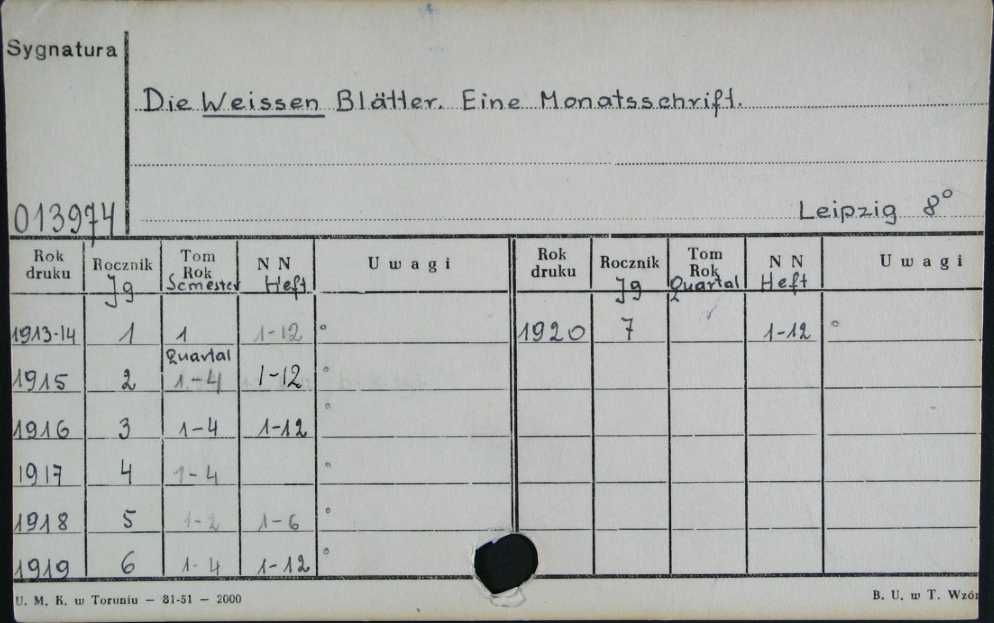 Sygnatura
Die Weissen Blätter. Eine Monatsschrift.
013974
Leipzig 8°
Rok druku Rocznik Tom Rok N N Uwagi Rok druku Rocznik Tom Rok N N Uwagi
Jg Semester Heft Jg Quartal Heft
1913-14 1 1 1-12 ° 1920 7 1-12 °
Quartal
1915 2 1-4 1-12 °
1916 3 1-4 1-12 °
1917 4 1-4 °
1918 5 1-2 1-6 °
1919 6 1-4 1-12 °
U. M. K. w Toruniu — 81-51 — 2000
B. U. w T. Wzór